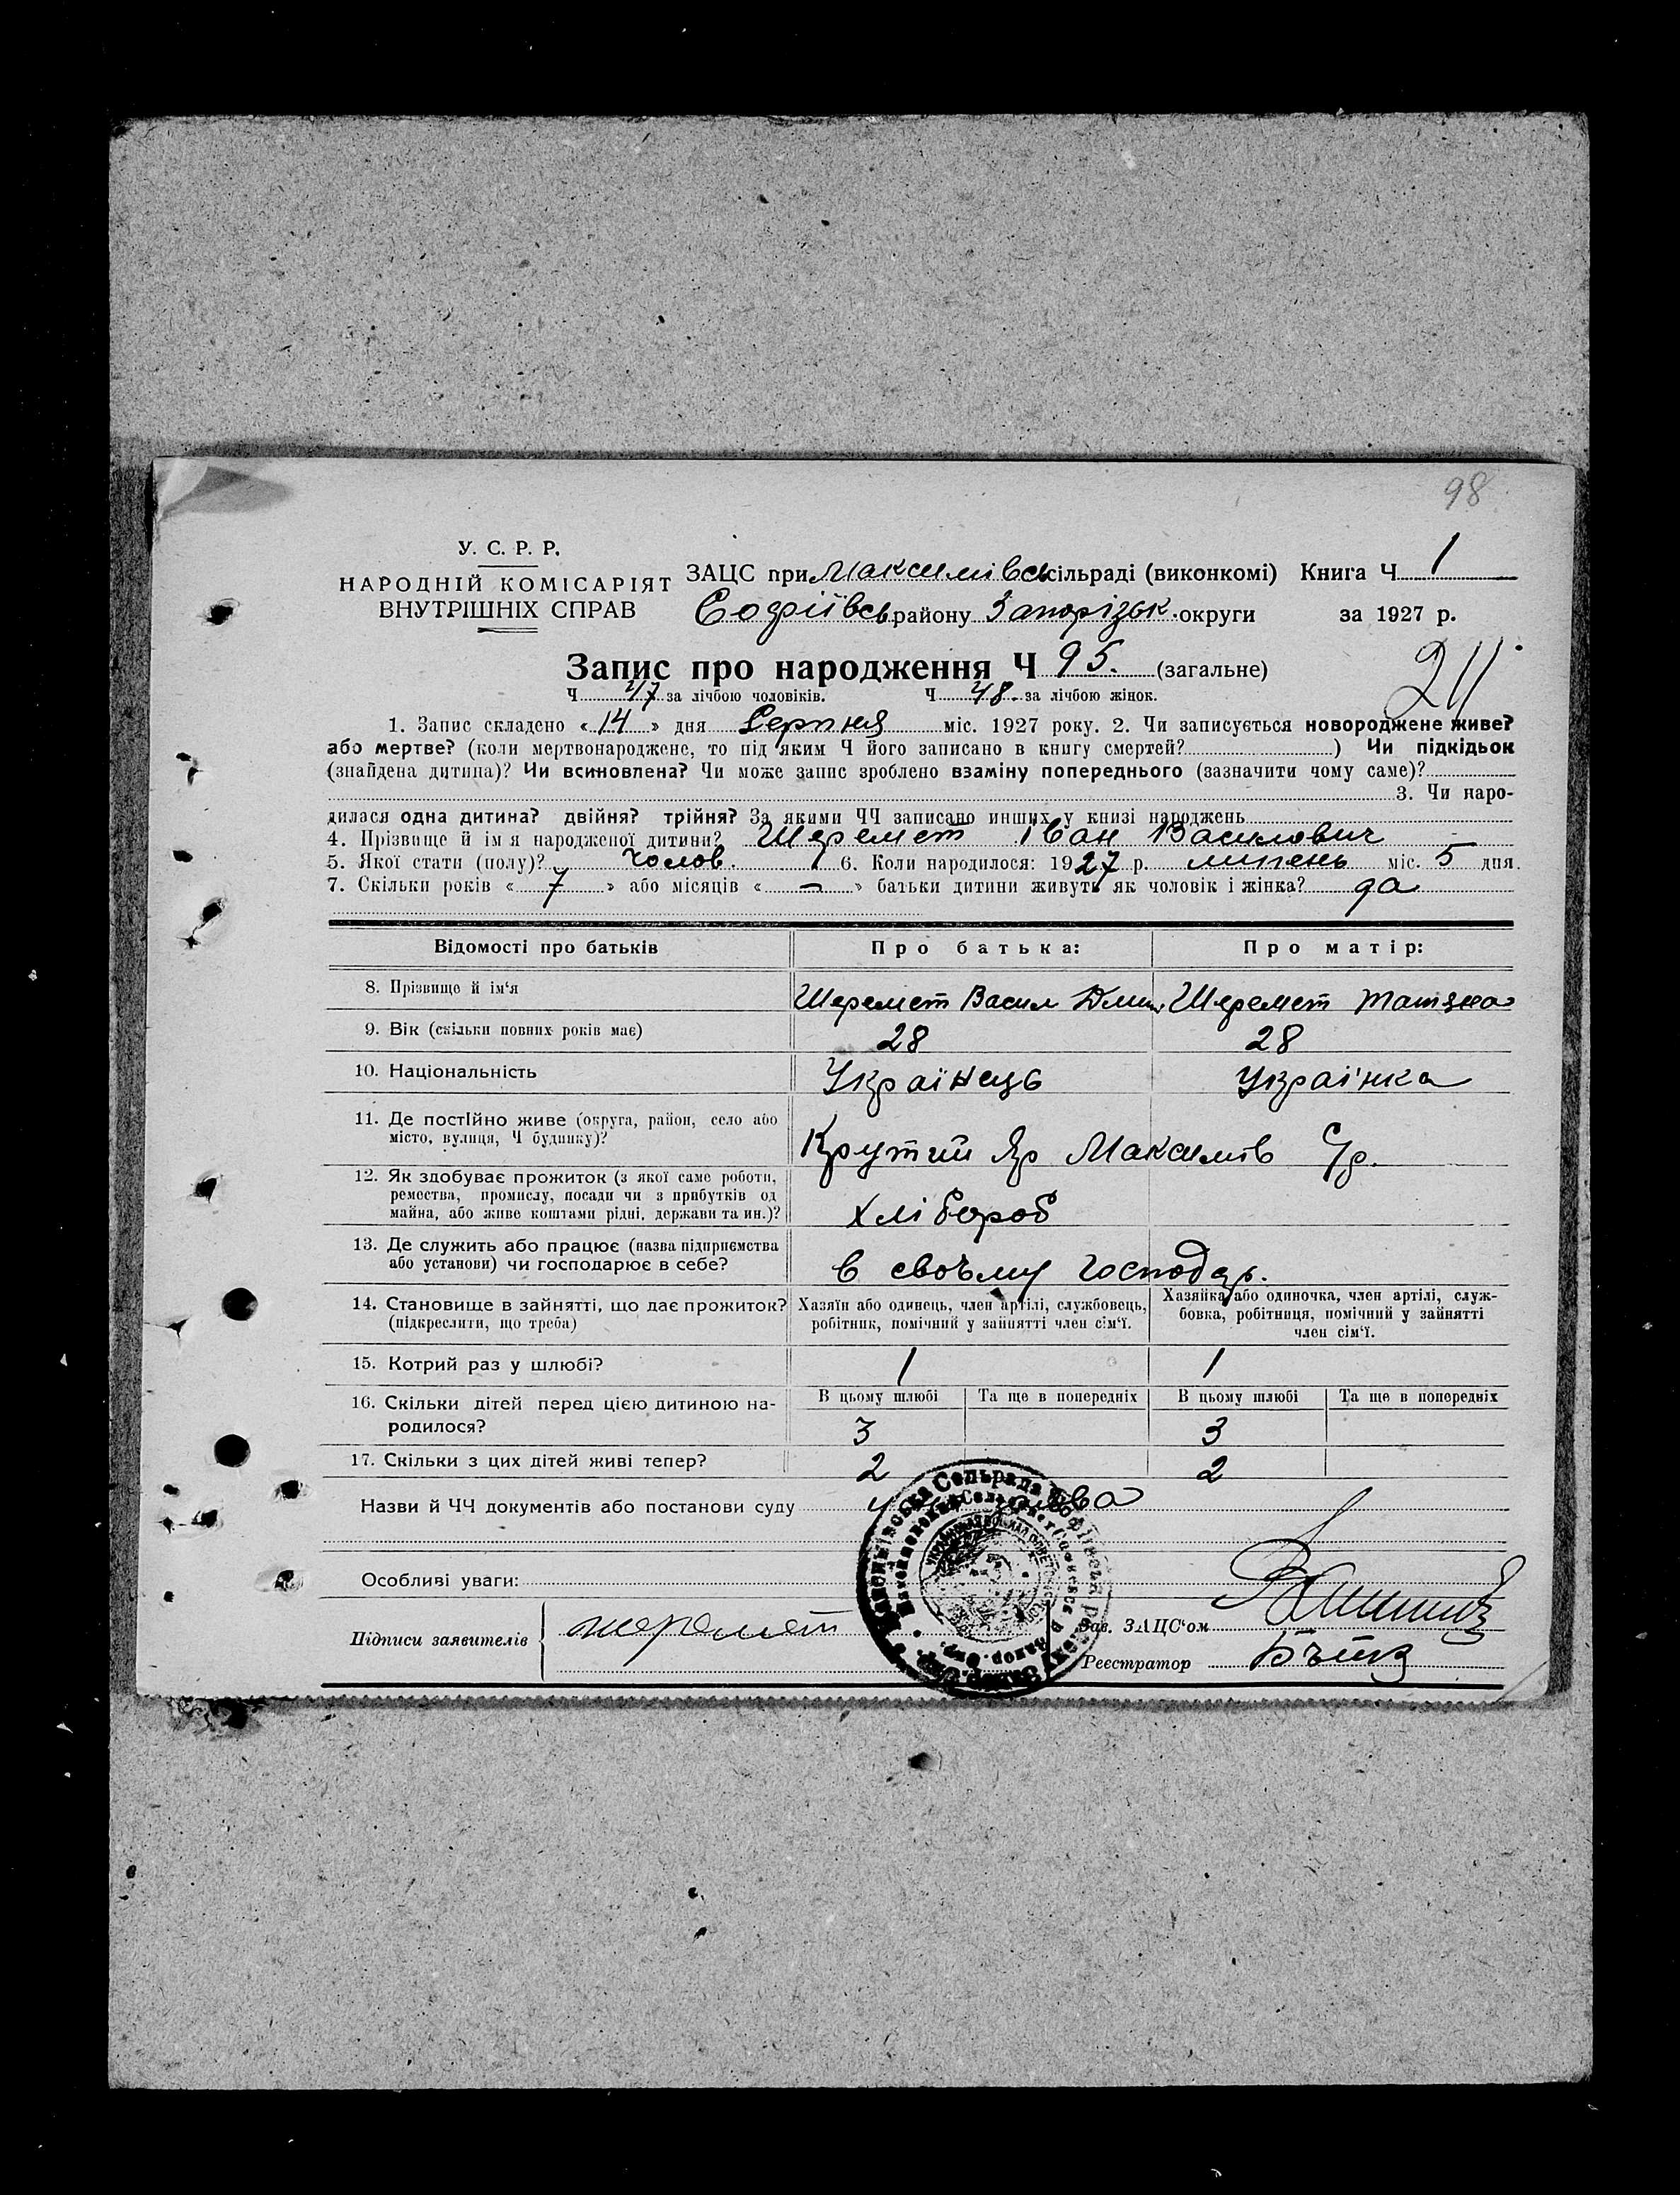 98
У. С. Р. Р.
НАРОДНІЙ КОМІСАРІЯТ
ВНУТРІШНІХ СПРАВ
ЗАЦС при Максимівсь сільраді (виконкомі) Книга Ч 1
Софіївсь району Запорізьк. округи за 1927 р.
Запис про народження Ч 95. (загальне)
211
Ч 47 за лічбою чоловіків. Ч 48 за лічбою жінок.
1. Запис складено «14» дня Серпня міс. 1927 року. 2. Чи записується новороджене живе?
або мертве? (коли мертвонароджене, то під яким Ч його записано в книгу смертей? ) Чи підкідьок
(знайдена дитина)? Чи всиновлена? Чи може запис зроблено взаміну попереднього (зазначити чому саме)?
3. Чи наро-
дилася одна дитина? двійня? трійня? За якими ЧЧ записано инших у книзі народжень
4. Прізвище й ім'я народженої дитини? Шеремет Іван Василович
5. Якої стати (полу)? Чолов. 6. Коли народилося: 1927 р. липень міс. 5 дня.
7. Скільки років «7» або місяців «—» батьки дитини живуть як чоловік і жінка? да
Відомості про батьків Про батька: Про матір:
8. Прізвище й ім'я Шеремет Васил Шеремет Татяна
9. Вік (скільки повних років має) 28 28
10. Національність Українець Українка
11. Де постійно живе (округа, район, село або
місто, вулиця, Ч будинку)? Крутий Яр Максимів С/р.
12. Як здобуває прожиток (з якої саме роботи,
ремества, промислу, посади чи з прибутків од
майна, або живе коштами рідні, держави та ин.)? Хлібороб
13. Де служить або працює (назва підприємства
або установи) чи господарює в себе? в своъму господар.
14. Становище в зайнятті, що дає прожиток?
(підкреслити, що треба)
Хазяїн або одинець, член артілі, службовець,
робітник, помічний у зайнятті член сім'ї.
Хазяйка або одиночка, член артілі, служ-
бовка, робітниця, помічний у зайнятті
член сім'ї.
15. Котрий раз у шлюбі? 1 1
16. Скільки дітей перед цією дитиною на-
родилося?
В цьому шлюбі Та ще в попередніх В цьому шлюбі Та ще в попередніх
3 3
17. Скільки з цих дітей живі тепер? 2 2
Назви й ЧЧ документів або постанови суду
Особливі уваги:
Підписи заявителів шеремет
Зав. ЗАЦС'ом
Реєстратор